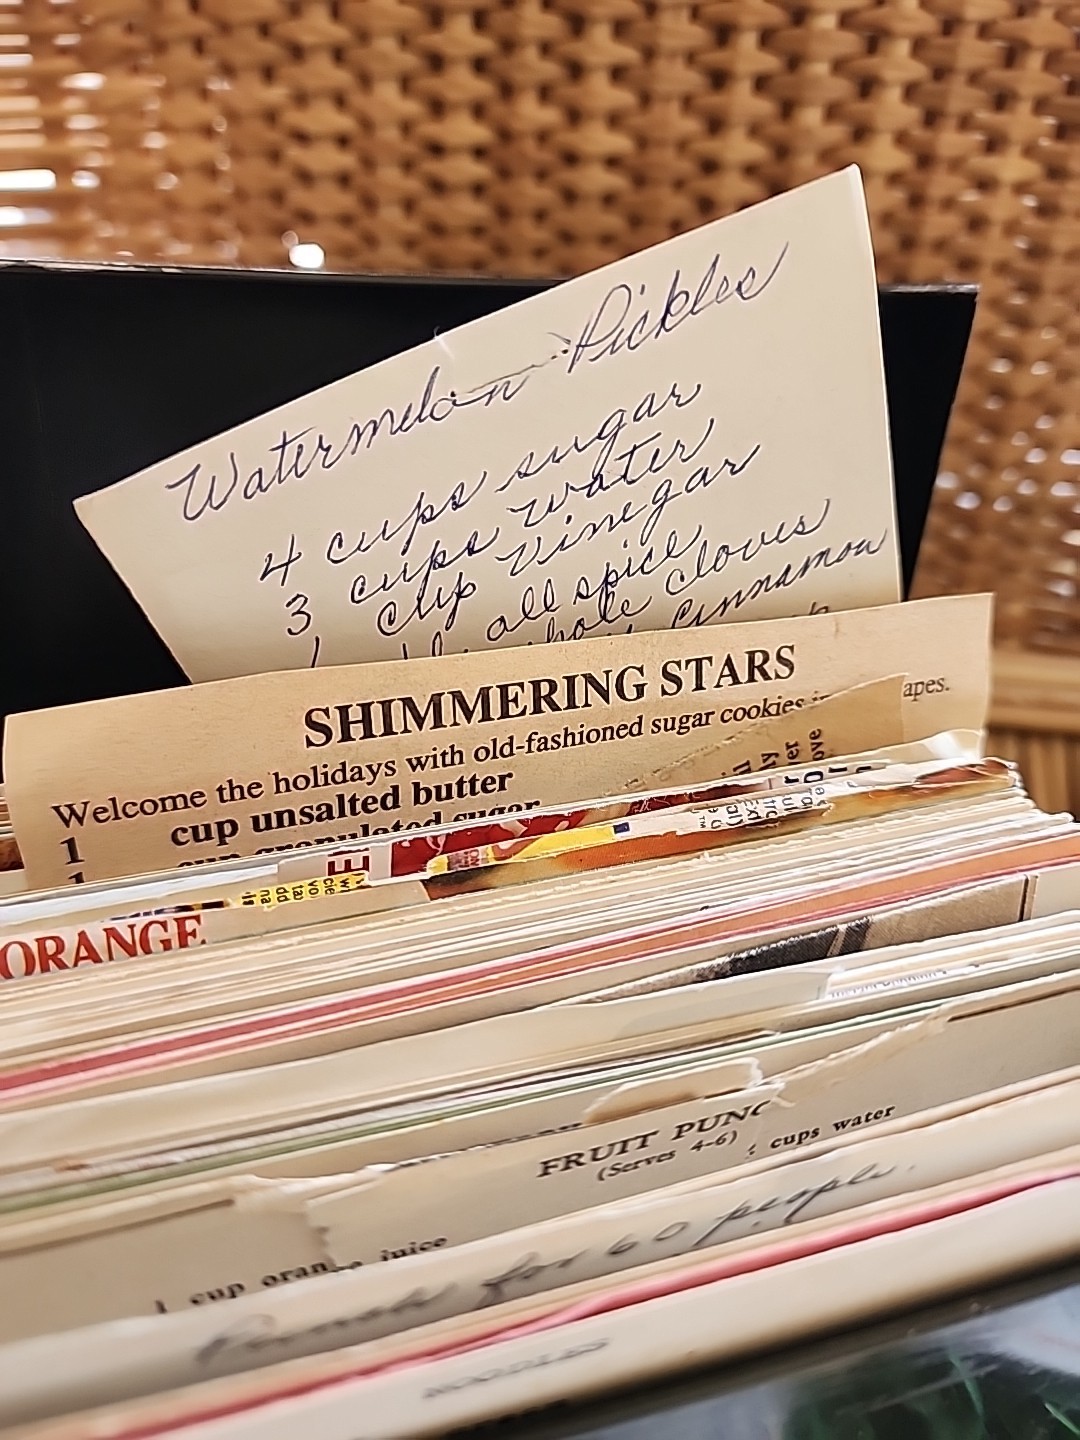 Watermelon Pickles
4 cups sugar
3 cups water
1 cup vinegar
all spice
whole cloves
cinnamon
SHIMMERING STARS
Welcome the holidays with old-fashioned sugar cookies in apes.
1 cup unsalted butter
1 cup granulated sugar
ORANGE
FRUIT PUNC
(Serves 4-6)
cups water
1 cup orange juice
Punch for 60 people.
NOODLES